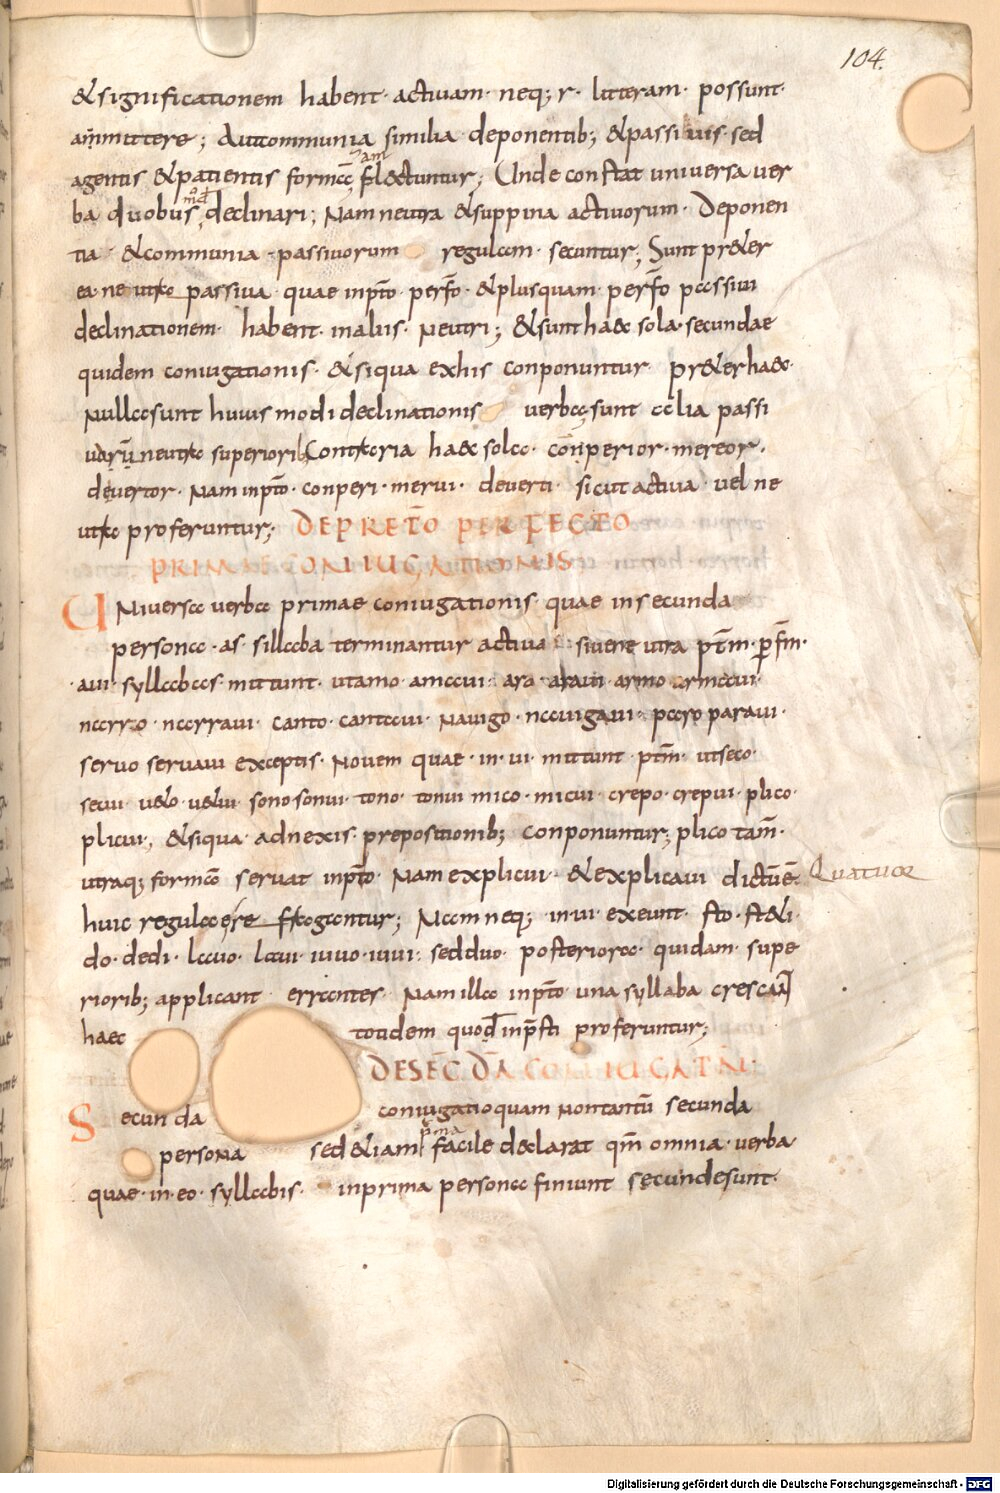 104.
&significationem habent· activam· neq; r· litteram· possunt·
ammittere; Autcommunia similia deponentib; &passivis· sed
agentis &patientis forma flectuntur; Unde constat universa ver
ba duobus declinari; Nam neutra &suppina activorum· Deponen
tia· &communia· passivorum regulam· secuntur; Sunt pr&er
ea· ne utro passiva· quae inpto· perfo· &plusquam· perfo passivi
declinationem· habent· inaliis· Neutri; &sunt haec sola· secundae
quidem coniugationis· &siqua exhis conponuntur pr&erhaec·
Nulla sunt huius modi declinationis verba sunt alia passi
uorū neutro superiorib; Contraria haec sola· conperior· mereor·
devertor· Nam inpto· conperi· merui· deverti· sicut activa· vel ne
utro proferuntur; DE PRETO PERFECTO
PRIMAE CONIUGATIONIS
Universa verba primae coniugationis· quae insecunda
persona· as· sillaba terminantur activa sive ne utra ptm· pfm·
·avi· syllabas mittunt· utamo· amavi· aro· aravi· armo armavi·
narro· narravi· canto· cantavi· navigo· navigavi· paro paravi·
servo servavi exceptis· Novem quae· in· ui· mittunt· ptm· utseco·
secui· veto· vetui· sono sonui· tono· tonui mico· micui· crepo· crepui· plico·
plicui; &siqua· adnexis· prepositionib; conponuntur; plico tam·
utraq; forma servat inpto· Nam explicui· &explicavi dictūē·
Quatuor
huic regulae fragantur; Nam neq; in· ui· exeunt· sto· st&i·
do· dedi· lavo· lavi· iuvo· iuvi· sedduo· posteriora· quidam· supe
riorib; applicant errantes· Nam illa inpto una syllaba crescunt
haec totidem quod inpsti proferuntur;
DE SEC DA CONIUGATN·
Secunda coniugatio quam Nontantū secunda
pma
persona sed &iam facile declarat qm omnia· verba·
quae· in· eo· syllabis· inprima persona finiunt secundesunt·